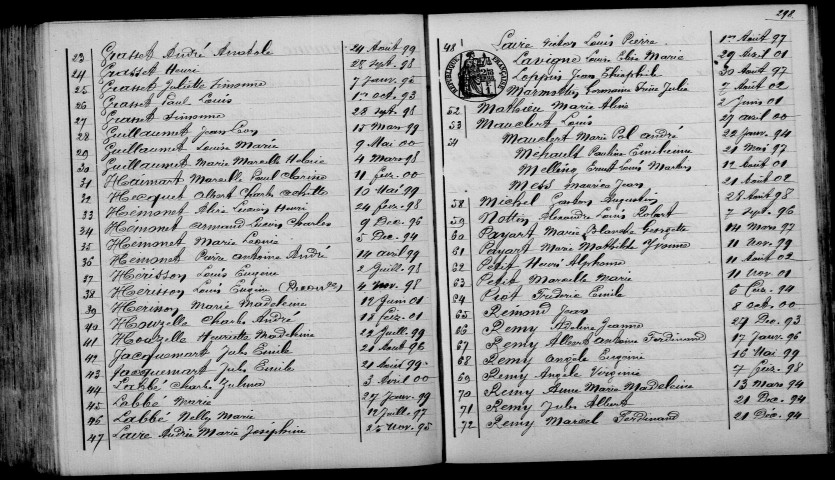 23 Grasset André Anatole 24 Août 99
24 Grasset Henri 28 Sept. 98
25 Grasset Juliette Simonne 7 Janv. 96
26 Grasset Paul Louis 1er Oct. 93
27 Grasset Simonne 23 Sept. 98
28 Guillaumet Jean Léon 15 Mars 99
29 Guillaumet Louise Marie 9 Mai 00
30 Guillaumet Marie Marcelle 4 Mars 98
31 Haimart Marcelle Paul 11 Févr. 00
32 Hecquet Albert Charles Achille 10 Mai 99
33 Hémonet Lucien Henri 24 Févr. 98
34 Hémonet Armand Lucien Charles 9 Déc. 96
35 Hemonet Marie Léonie 5 Déc. 94
36 Hemonet Pierre Antoine André 14 Avril 99
37 Hérisson Louis Eugène 2 Juill. 98
38 Herisson Louis Eugène 4 Nov. 98
39 Herisson Marie Madeleine 12 Juin 01
40 Houzelle Charles André 18 Févr. 01
41 Houzelle Henriette Madeleine 22 Juill. 99
42 Jacquemart Jules Emile 21 Août 96
43 Jacquemart Jules Emile 21 Août 99
44 Labbé Charles 3 Avril 00
45 Labbé Marie 27 Janv. 99
46 Labbé Nelly Marie 12 Juill. 97
47 Laire Marie Joséphine 25 Nov. 95
298
48 Laire Louis Pierre 1er Août 97
Lavigne Louis Marie 29 Avril 01
Loppin Jean Théophile 30 Août 97
Germaine Julie Août 02
RÉPUBLIQUE FRANÇAISE
52 Mathieu Marie 2 Juin 01
53 Mauclert Louis 27 Avril 00
54 Mauclert Marie Pol André 22 Janv. 94
Mehault Pauline Emilienne 21 Mai 97
Louis 12 Août 01
Mess Maurice Jean 21 Août 02
58 Michel Augustin 28 Août 98
59 Nottin Alexandre Louis Robert 7 Sept. 96
60 Payart Marie Blanche Georgette 14 Mars 97
61 Payart Marie Mathilde Yvonne 11 Nov. 99
62 Petit Henri Alphonse 11 Août 02
63 Petit Marcelle Marie 11 Nov. 01
64 Piot Frédéric Emile 6 Févr. 94
65 Remond Jean 8 Oct. 00
66 Remy Adeline Jeanne 29 Déc. 93
67 Remy Albert Antoine Ferdinand 17 Janv. 96
68 Remy Angèle Eugénie 16 Mai 99
69 Remy Angèle Virginie 7 Févr. 98
70 Remy Anne Marie Madeleine 13 Mars 94
71 Remy Jules Albert 21 Déc. 94
72 Remy Marcel Ferdinand 21 Déc. 94